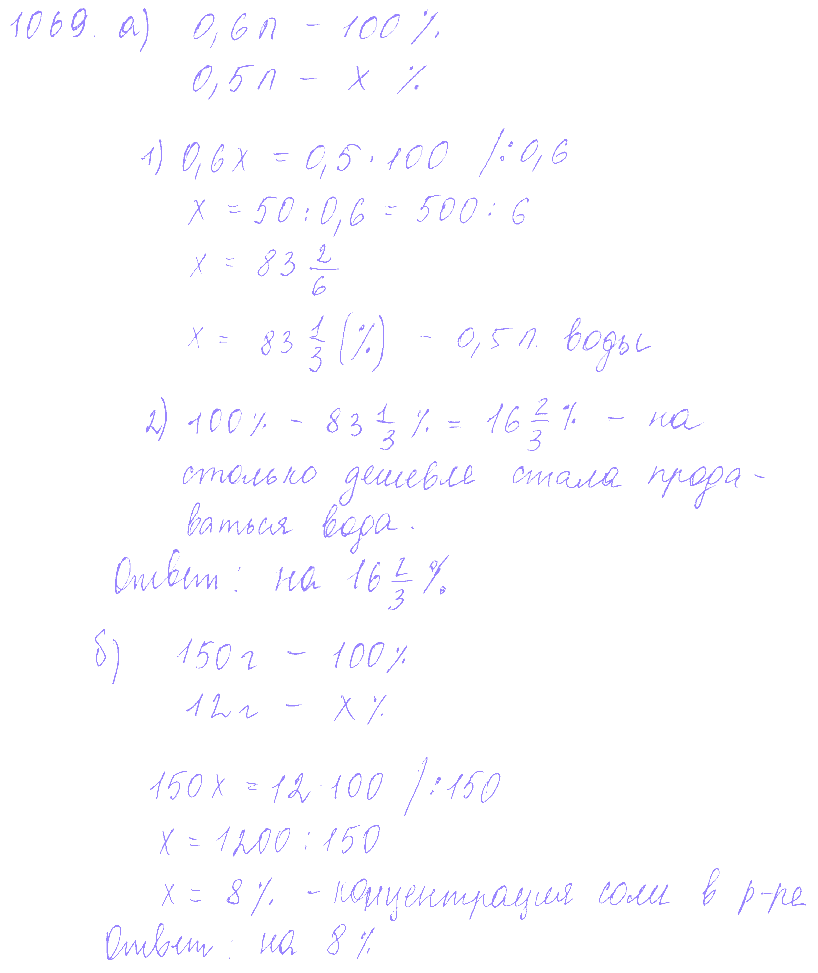 1069. а) 0,6 л - 100 %
0,5 л - x %
1) 0,6x = 0,5 · 100 /:0,6
x = 50 : 0,6 = 500 : 6
x = 83 2/6
x = 83 1/3 (%) - 0,5 л. воды
2) 100% - 83 1/3 % = 16 2/3 % - на
столько дешевле стала прода-
ваться вода.
Ответ: на 16 2/3 %.
б) 150 г - 100%
12 г - x %
150x = 12 · 100 /:150
x = 1200 : 150
x = 8% - концентрация соли в р-ре
Ответ: на 8%